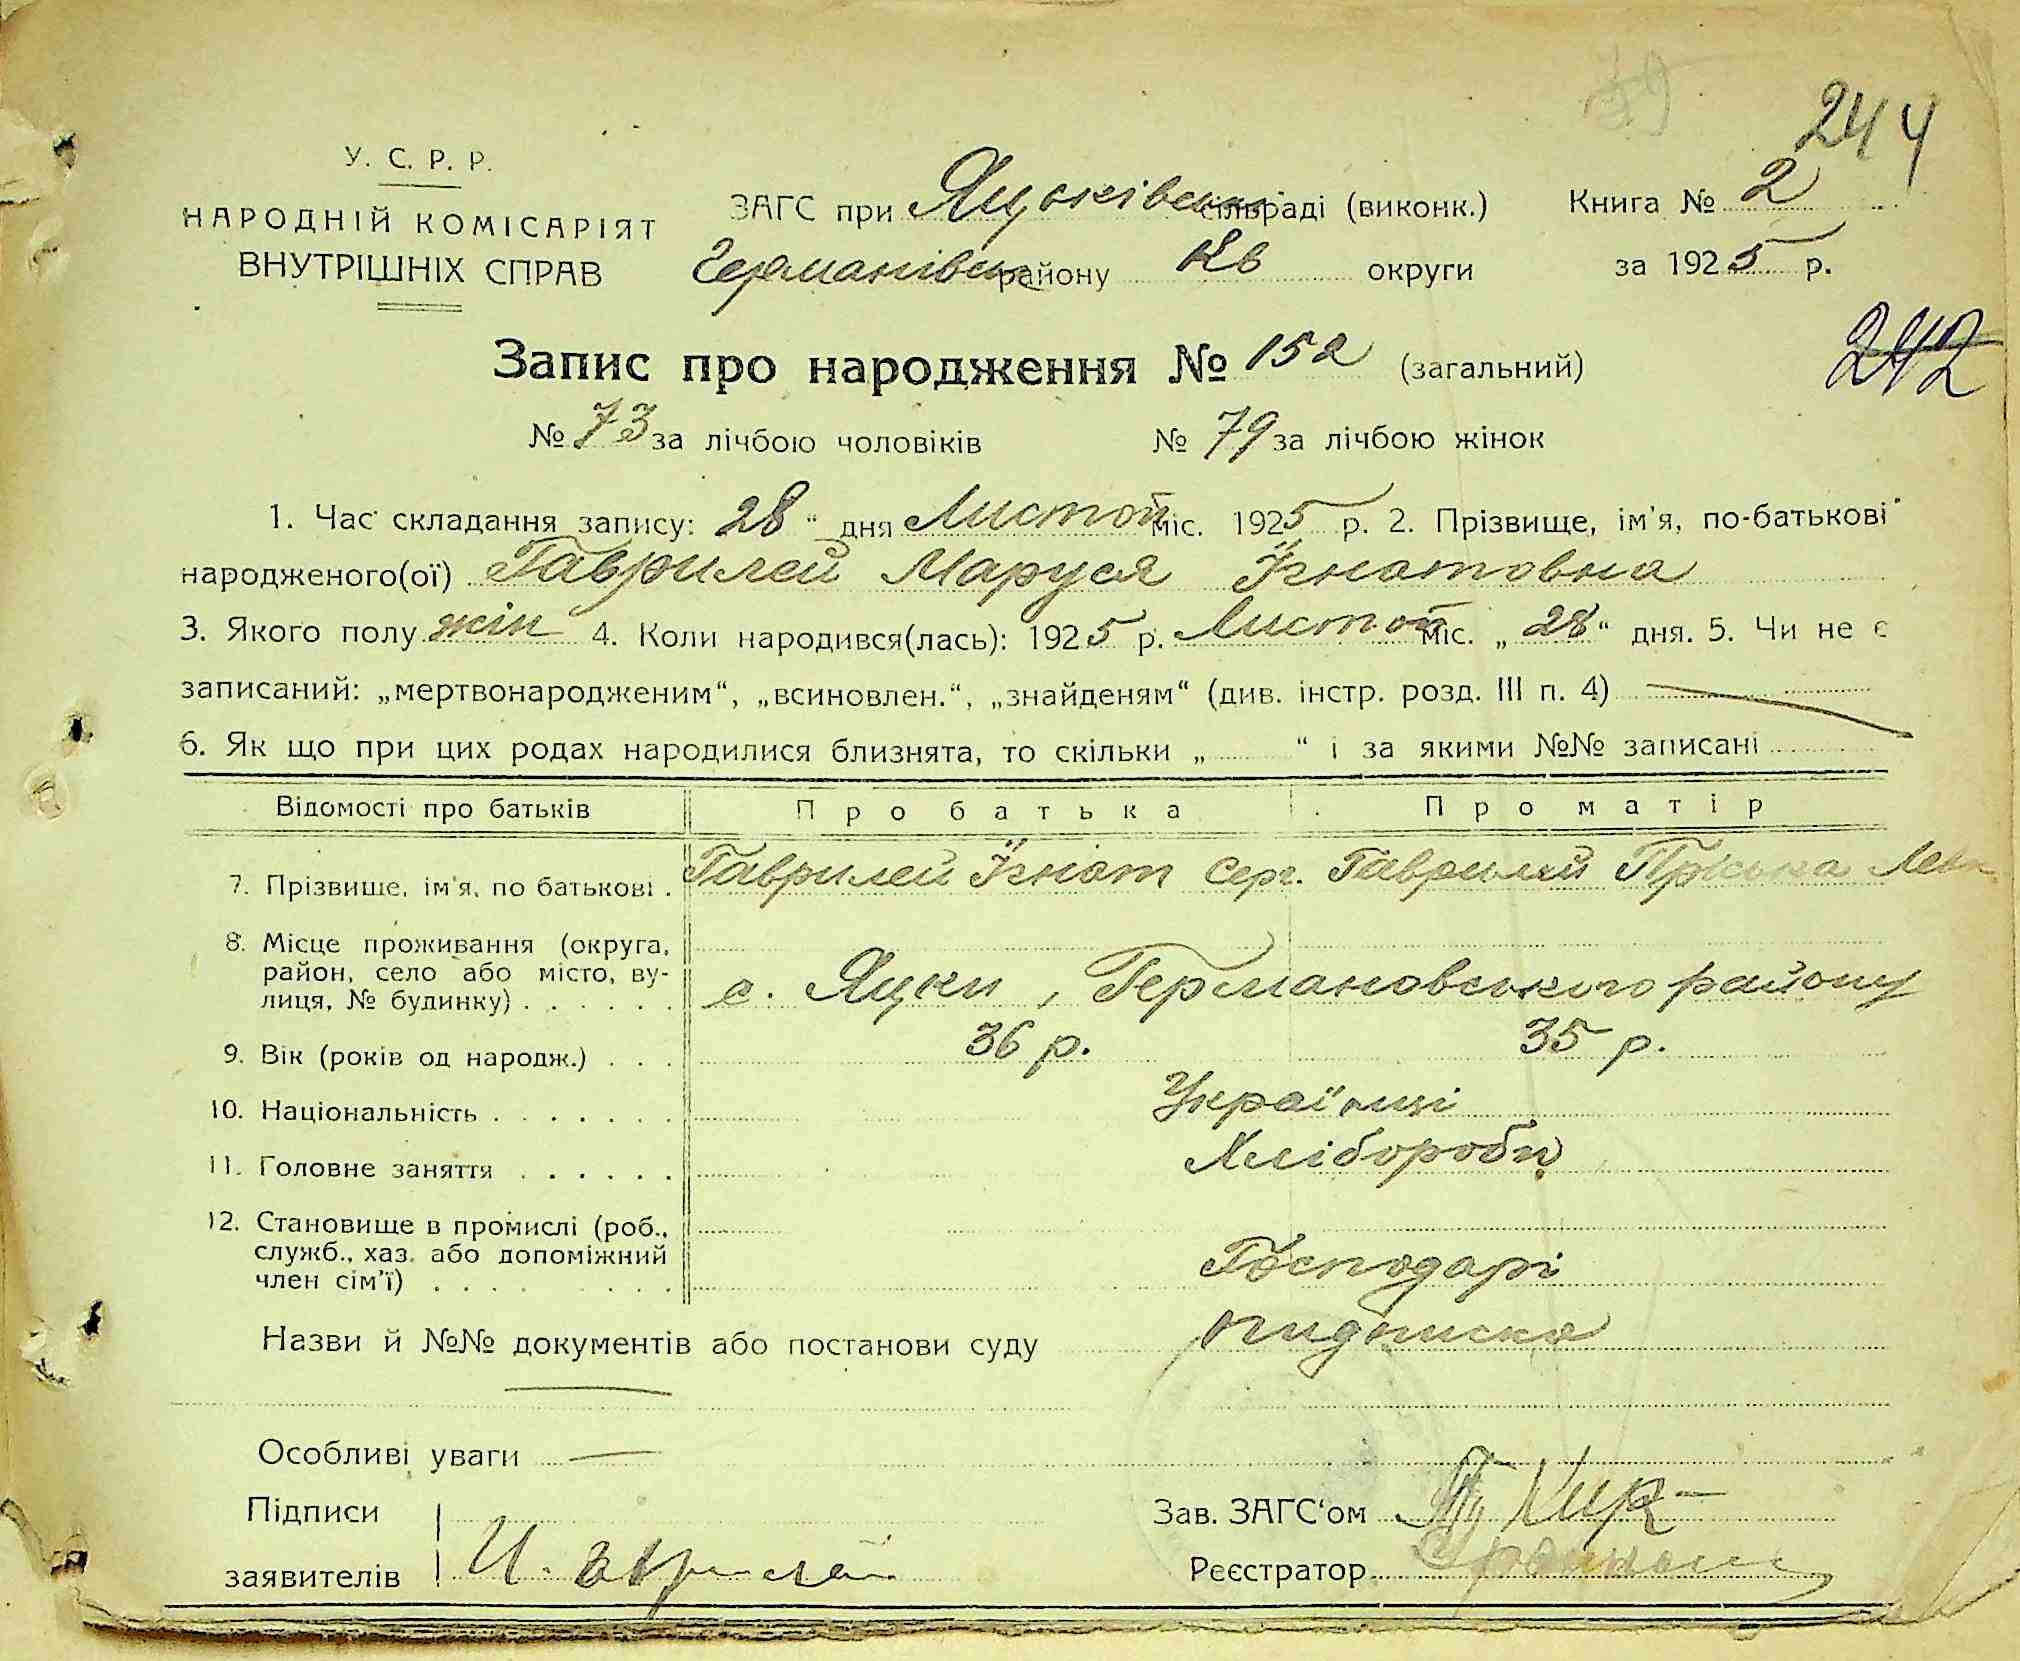 244
У. С. Р. Р.
НАРОДНІЙ КОМІСАРІЯТ
ВНУТРІШНІХ СПРАВ
ЗАГС при Яцьківськ сільраді (виконк.) Книга № 2
Германівськ району Кв округи за 1925 р.
242
Запис про народження № 152 (загальний)
№ 73 за лічбою чоловіків № 79 за лічбою жінок
1. Час складання запису: 28 “ дня Листоп міс. 1925 р. 2. Прізвище, ім'я, по-батькові
народженого(ої) Гаврилей Маруся Ігнатовна
3. Якого полу жін 4. Коли народився(лась): 1925 р. Листоп міс. „ 28 “ дня. 5. Чи не є
записаний: „мертвонародженим“, „всиновлен.“, „знайденям“ (див. інстр. розд. III п. 4)
6. Як що при цих родах народилися близнята, то скільки „ “ і за якими №№ записані
Відомості про батьків Про батька Про матір
7. Прізвище, ім'я, по батькові . Гаврилей Ігнат Серг. Гаврилей Пріська
8. Місце проживання (округа,
район, село або місто, ву-
лиця, № будинку) . . . . . . с. Яцки, Германовського району
9. Вік (років од народж.) . . . 36 р. 35 р.
10. Національність . . . . . . . Українці
11. Головне заняття . . . . . . Хлібороби
12. Становище в промислі (роб.,
служб., хаз. або допоміжний
член сім'ї) . . . . . . . . Господарі
Назви й №№ документів або постанови суду підписка
Особливі уваги —
Підписи Зав. ЗАГС‘ом
заявителів Реєстратор